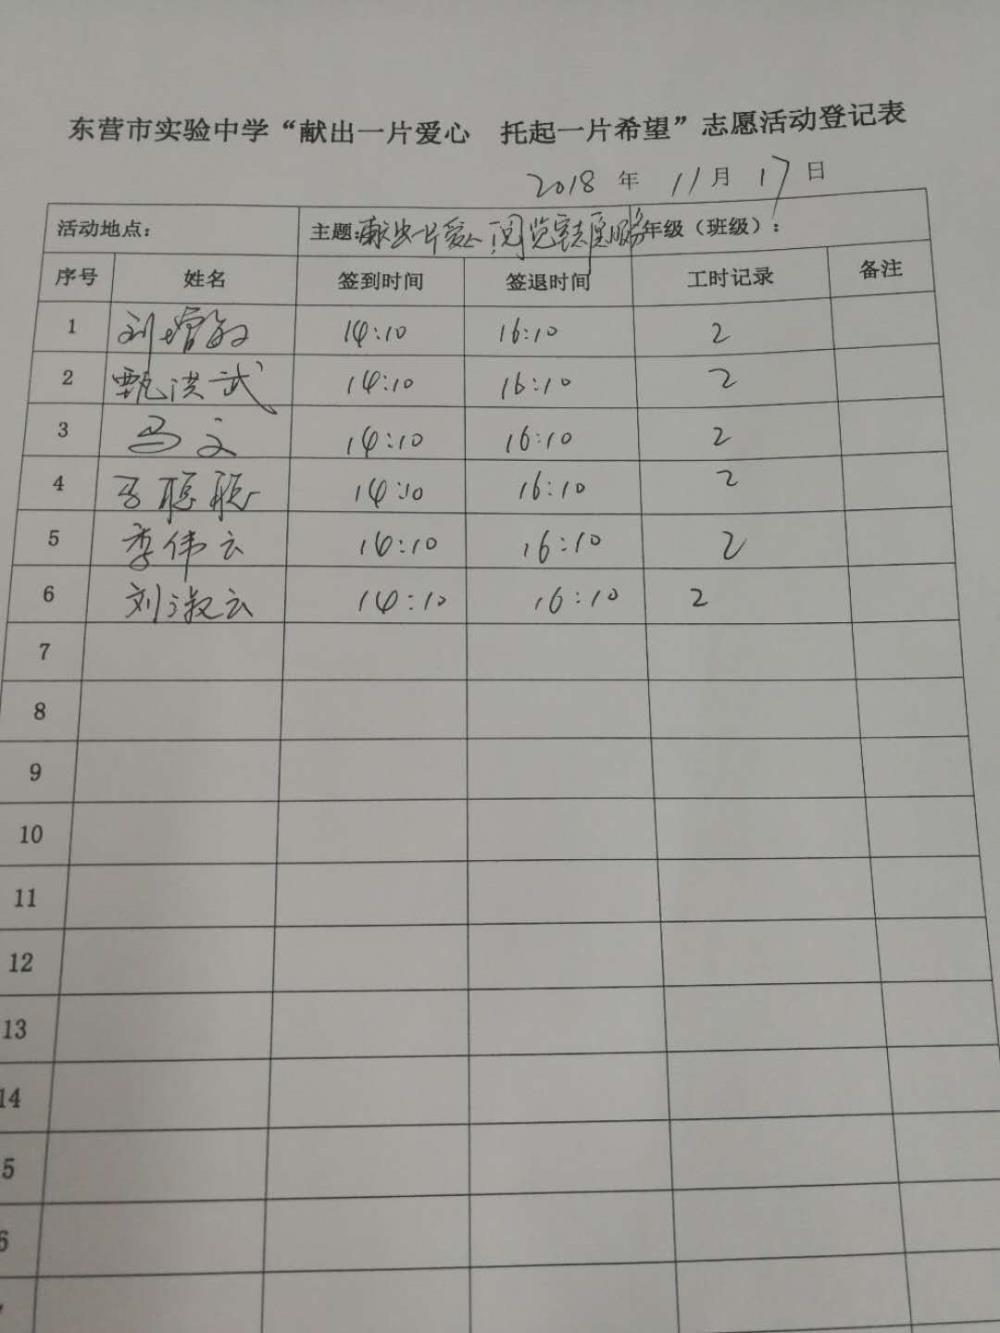 东营市实验中学“献出一片爱心 托起一片希望”志愿活动登记表
2018 年 11 月 17 日
活动地点： 主题：献出一片爱心 阅览室志愿服务 年级（班级）：
序号 姓名 签到时间 签退时间 工时记录 备注
1 刘增敏 14:10 16:10 2
2 甄洪武 14:10 16:10 2
3 马文 14:10 16:10 2
4 聪聪 14:10 16:10 2
5 李伟云 14:10 16:10 2
6 刘淑云 14:10 16:10 2
7
8
9
10
11
12
13
14
5
6